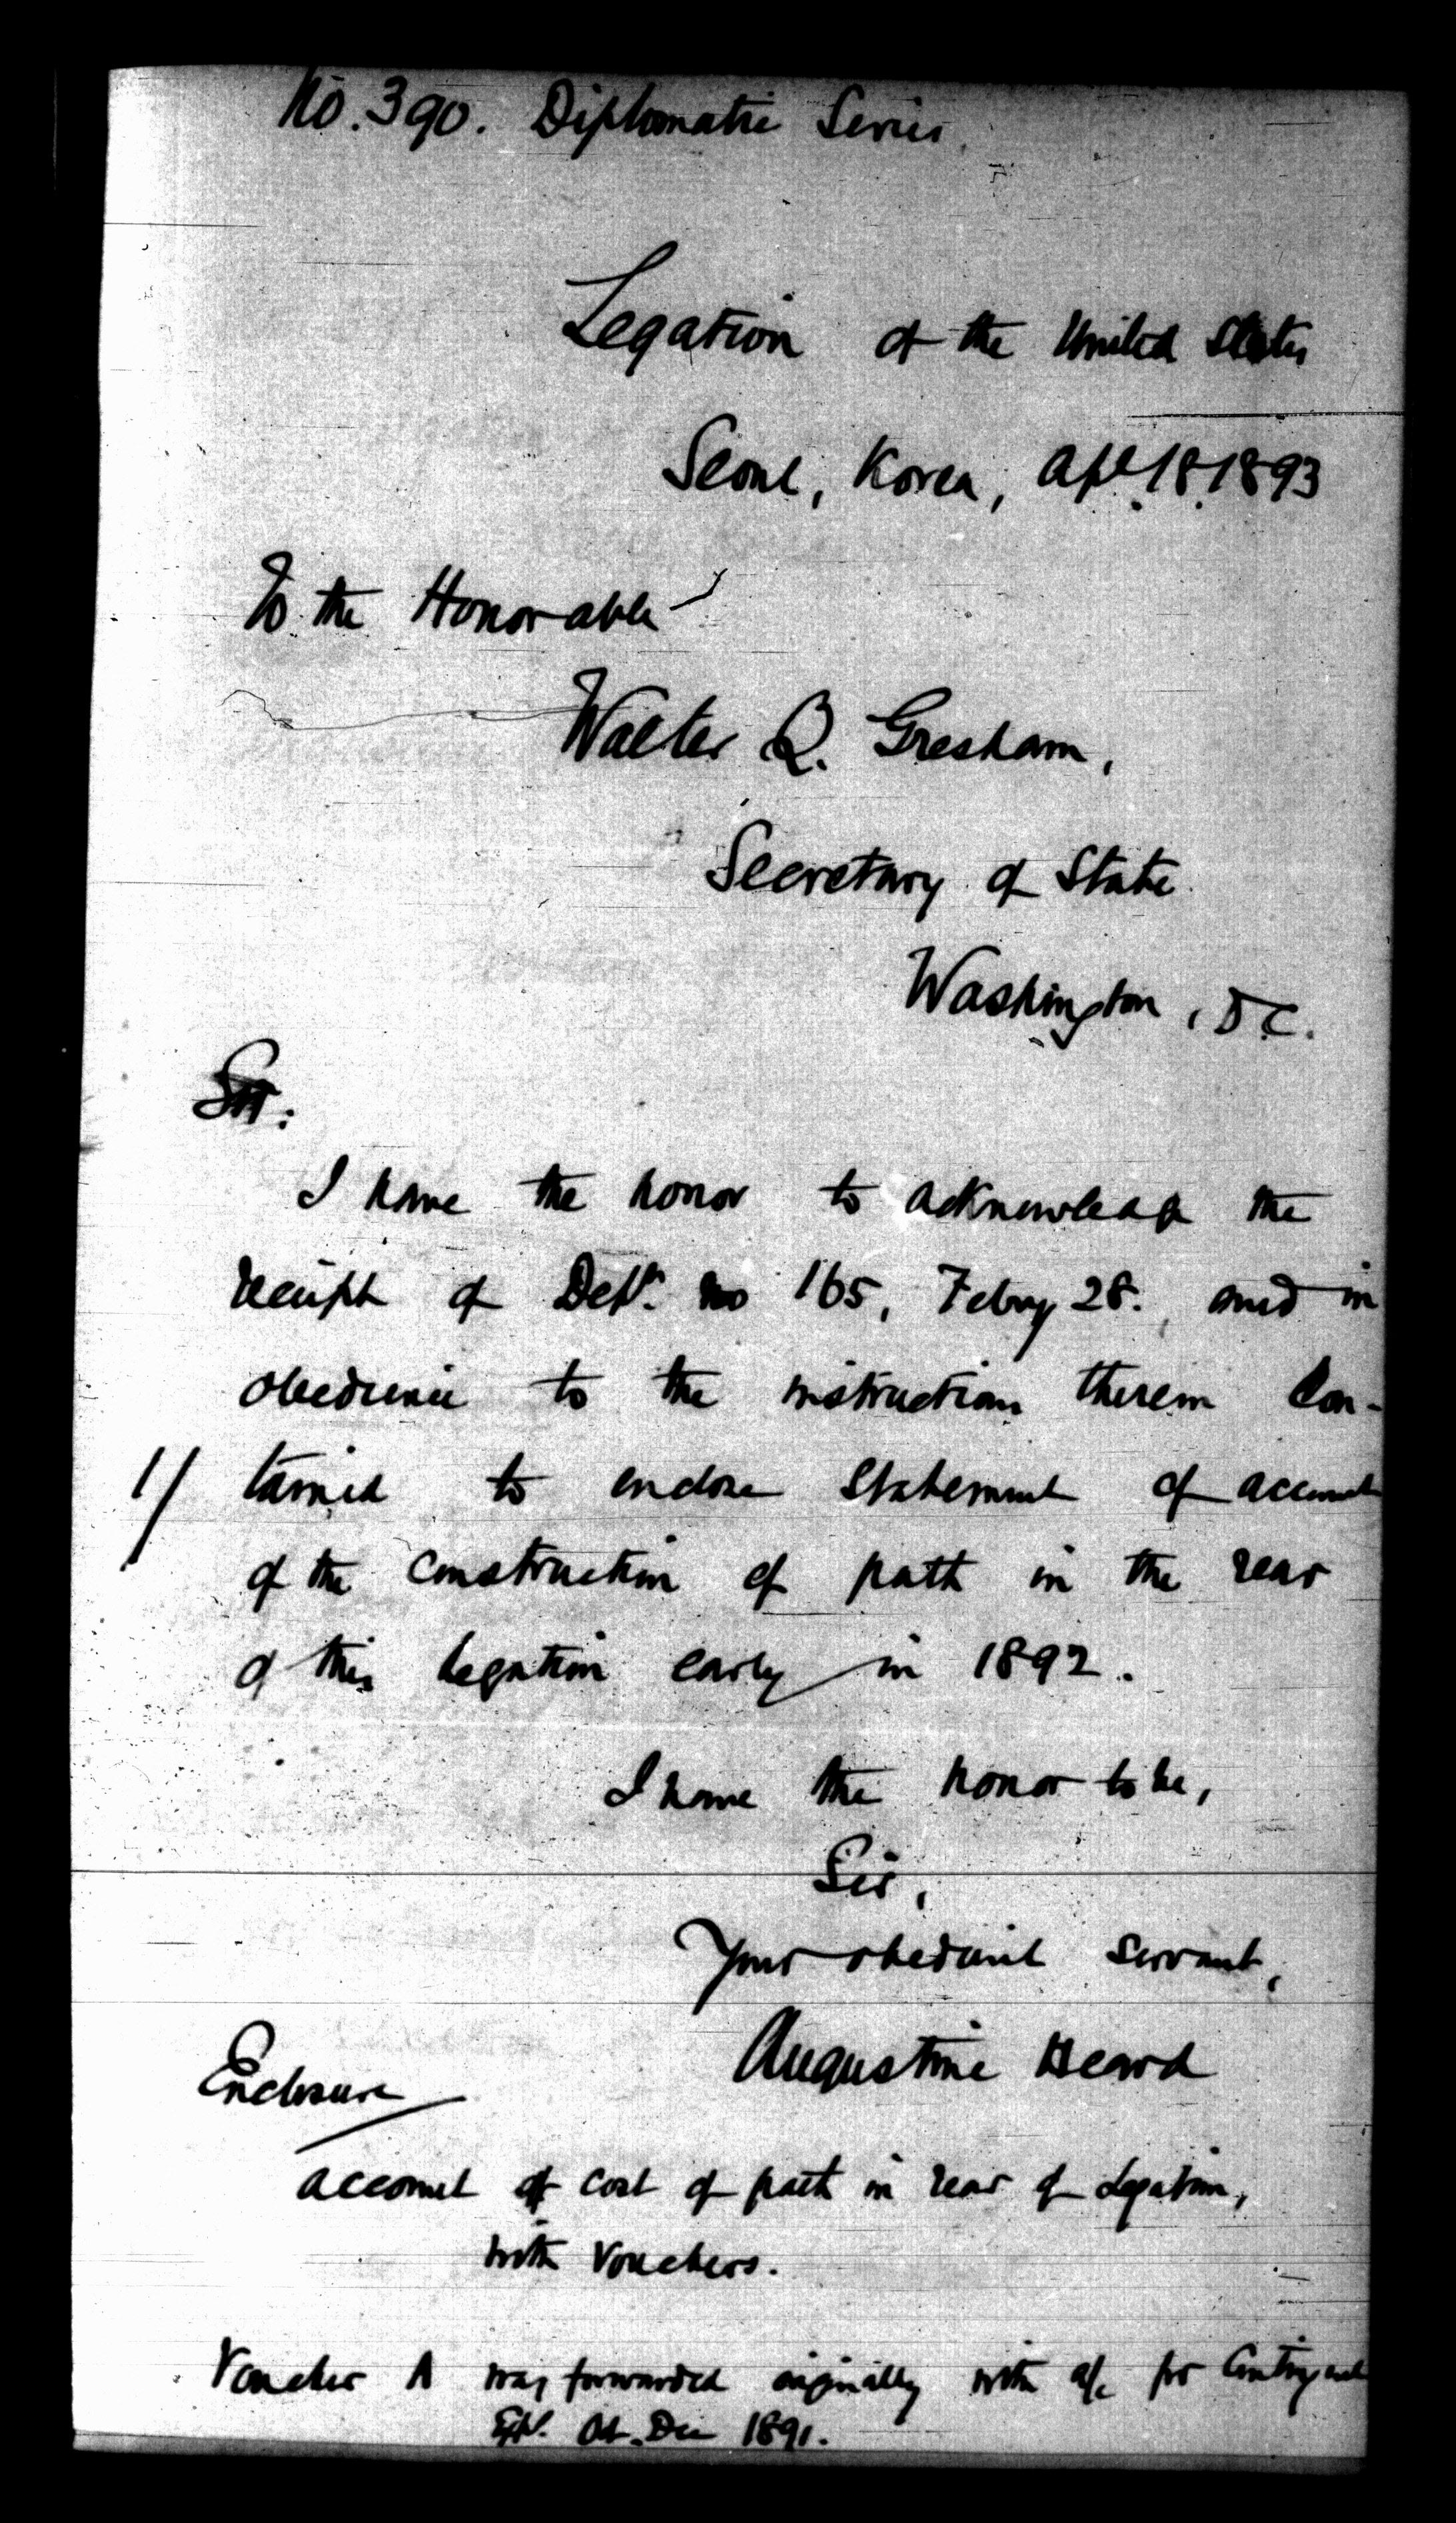 No. 390. Diplomatic Series.
Legation of the United States
Seoul, Korea, Apl. 18. 1893
To the Honorable
Walter Q. Gresham,
Secretary of State
Washington, D.C.
Sir:
I have the honor to acknowledge the
receipt of Dept. No 165, Febry 28. and in
obedience to the instructions therein con-
1/ tained to enclose statement of account
of the construction of path in the rear
of this Legation early in 1892.
I have the honor to be,
Sir,
Your obedient servant,
Augustine Heard
Enclosure
Account of cost of path in rear of Legation,
with vouchers.
Voucher A was forwarded originally with a/c for Contingent
Exp. Oct. Dec 1891.